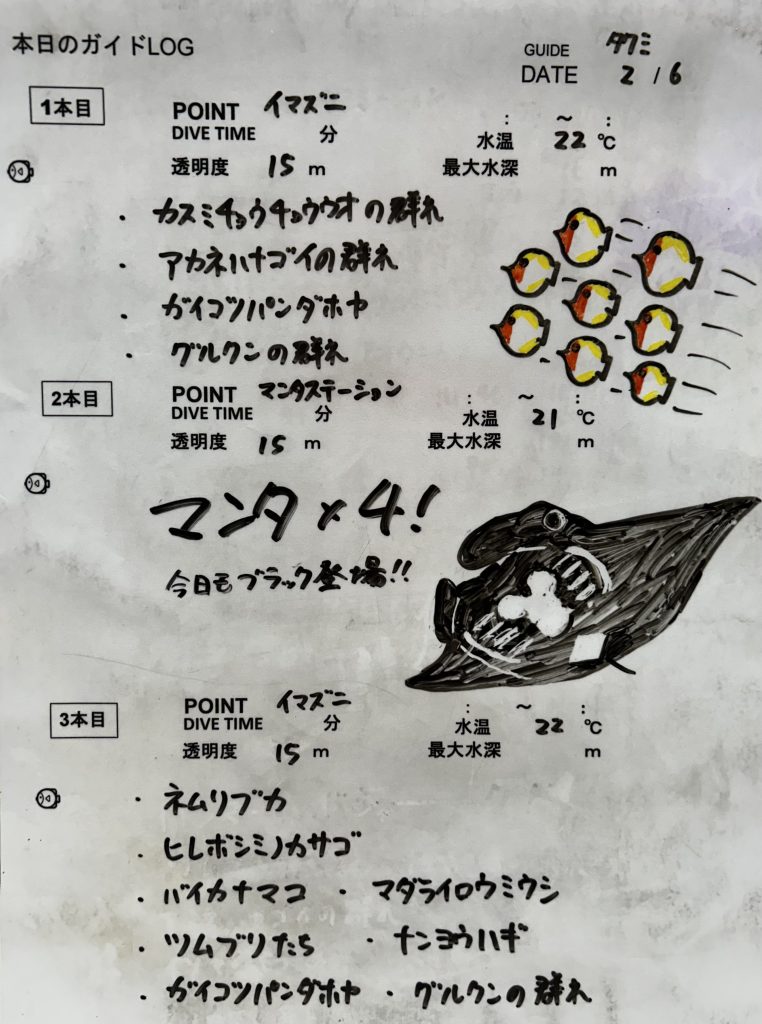 本日のガイドLOG
GUIDE タクミ
DATE 2/6
1本目
POINT イマズニ
DIVE TIME 分 : ～ :
水温 22 ℃
透明度 15 m 最大水深 m
・カスミチョウチョウウオの群れ
・アカネハナゴイの群れ
・ガイコツパンダホヤ
・グルクンの群れ
2本目
POINT マンタステーション
DIVE TIME 分 : ～ :
水温 21 ℃
透明度 15 m 最大水深 m
マンタ×4!
今日もブラック登場!!
3本目
POINT イマズニ
DIVE TIME 分 : ～ :
水温 22 ℃
透明度 15 m 最大水深 m
・ネムリブカ
・ヒレボシミノカサゴ
・バイカナマコ ・マダライロウミウシ
・ツムブリたち ・ナンヨウハギ
・ガイコツパンダホヤ ・グルクンの群れ